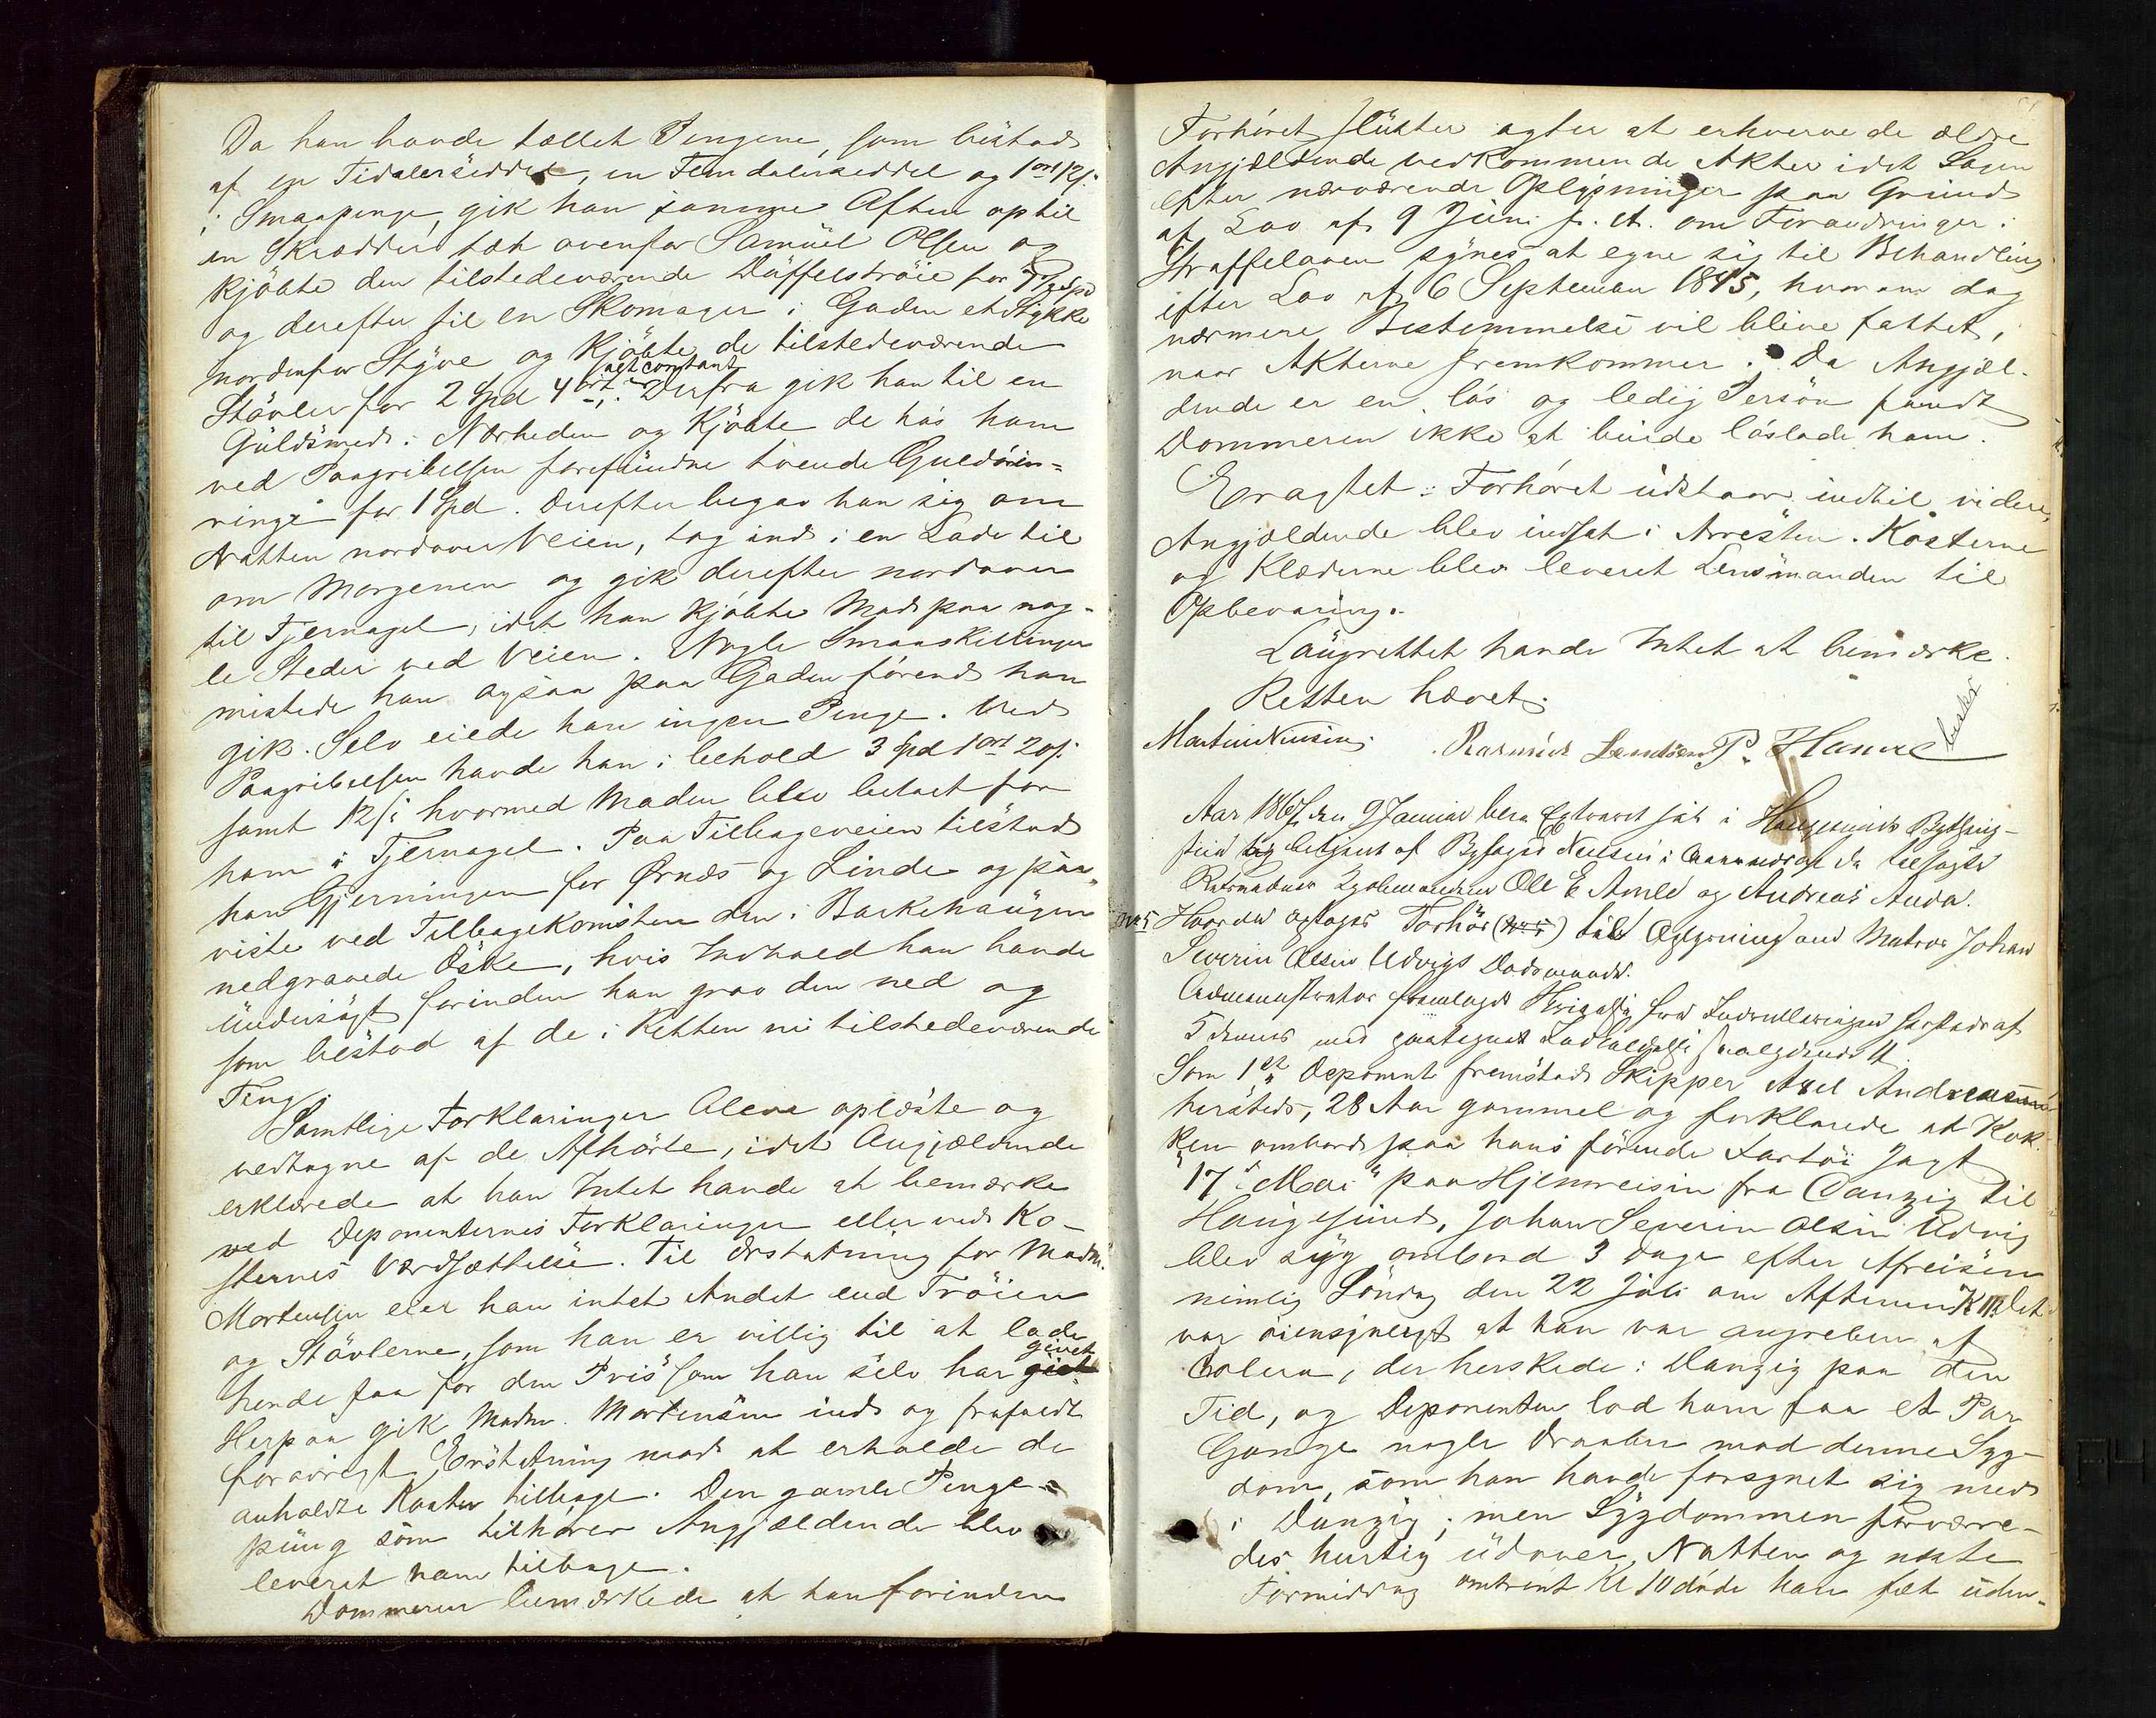 Da han havde tællet Pengene, som bestod
af en Tidalerseddel, en Femdalerseddel og 1 ort 12 s.
i Smaapenge, gik han samme Aften op til
en Skrædder tæt ovenfor Samuel Olsen og
kjøbte den tilstedeværende Düffelstrøie for
og derefter til en Skomager i Gaden et Stykke
nordenfor Styve og Kjøbte de tilstedeværende
Støvler for 2 Spd 4 ort. Derfra gik han til en
alt contant
Guldsmed i Nærheden og Kjøbte de hos ham
ved Paagribelsen forefundne tvende Guldörin=
ringe for 1 Spd. Derefter begav han sig om
Natten nordover Veien, tog ind i en Lade til
om Morgenen og gik derefter nordover
til Tjernagel, idet han kjøbte Mad paa nog-
le Steder ved Veien. Nogle Smaaskillinger
mistede han ogsaa paa Gaden förend han
gik. Selv eiede han ingen Penge. Ved
Paagribelsen havde han i behold 3 Spd 1 ort 20 s.
samt 12 s. hvormed Maden blev betalt for
ham i Tjernagel. Paa Tilbageveien tilstod
han Gjerningen for Ørnæs og Linde og paa-
viste ved Tilbagekomsten den i Bakkehaugen
nedgravede Öske, hvis Indhold han havde
Undersøgt forinden han grov den ned og
som bestod af de i Retten nu tilstedeværende
Ting.
Samtlige Forklaringer bleve oplæste og
vedtagne af de Afhörte, idet Angjældende
erklærede at han Intet havde at bemærke
ved Deponenternes Forklaringer eller ved Ko-
sternes Værdsættelse. Til Erstatning for Madm.
Mortensen eier han intet Andet end Tröien
og Stövlerne, som han er villig til at lade
hende faa for den Pris som han selv har givet
Herpaa gik Madm. Mortensen ind og frafaldt
forøvrigt Erstatning mod at erholde de
anholdte Koster tilbage. Den gamle Penge-
pung som tilhører Angjældende blev
leveret ham tilbage.
Dommeren bemærkede at han forinden
Forhöret slutter agter at erhverve de ældre
Angjældende vedkommende Akter idet Sagen
efter nærværende Oplysninger paa Grund
af Lov af 9 Juni f. A. om Forandringer i
Straffeloven synes at egne sig til Behandling
efter Lov af 6 September 1845, hvorom dog
nærmere Bestemmelse vil blive fattet,
naar Akterne fremkommer. Da Angjæl-
dende er en lös og ledig Person fandt
Dommeren ikke at burde löslade ham.
Eragtet: Forhöret udstaar indtil videre,
Angjældende blev indsat i Arresten. Kosterne
og Klæderne blev leveret Lensmanden til
Opbevaring.
Laugrettet havde Intet at bemærke.
Retten hævet.
Martin Nilsen. Rasmus P. Hanve
Aar 1867 den 9 Januar blev Extraret sat i Haugesunds Bything-
stue og betjent af Byfoged Nielsen i Overværelse da tilsagte
Retsvidner Ole E Amlie og Andreas Auda.
No 5 Hvorda optoges Forhör til Oplysning om Matros Johan
Severin Olsen Udvigs Dødsmaade.
Administrator fremlagde Skrivelse fra Indrulleringen Karstad af
5 dennes med paategnet
Som 1ste Deponent fremstod Skipper Axel Andreasen
hersteds, 28 Aar gammel og forklarede at Kok-
ken ombord paa hans förende Fartöi Jagt
"17de Mai" paa Hjemreisen fra Danzig til
Haugesund, Johan Severin Olsen Udvig
blev syg ombord 3 Dage efter Afreisen
nemlig Söndag den 22 Juli om Aftenen Kl 11. Det
var öiensynligt at han var angreben af
Colera, der herskede i Danzig paa den
Tid, og Deponenten lod ham faa et Par
Gange nogle Draaber mod denne Syg-
dom, som han havde forsynet sig med
i Danzig; men Sygdommen forværre-
des hurtig udover Natten og næste
Formiddag omtrent Kl 10 döde han tæt uden-